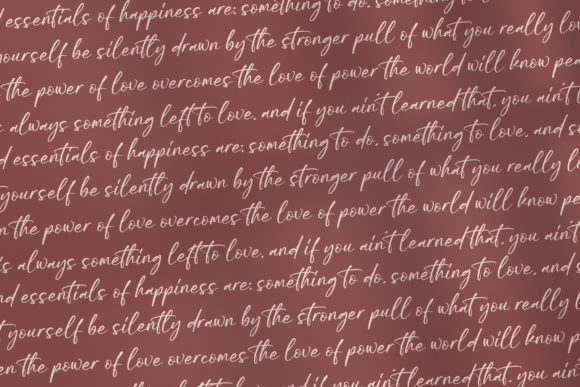 d essentials of happiness are: something to do, something to
yourself be silently drawn by the stronger pull of what you really lo
n the power of love overcomes the love of power the world will know pea
s always something left to love. and if you ain't learned that, you ain't l
d essentials of happiness are: something to do, something to love, and s
yourself be silently drawn by the stronger pull of what you really l
n the power of love overcomes the love of power the world will know pe
's always something left to love. and if you ain't learned that, you ain't
nd essentials of happiness are: something to do, something to love, and s
t yourself be silently drawn by the stronger pull of what you really l
en the power of love overcomes the love of power the world will know p
always something left to love. and if you ain't learned that, you ain't